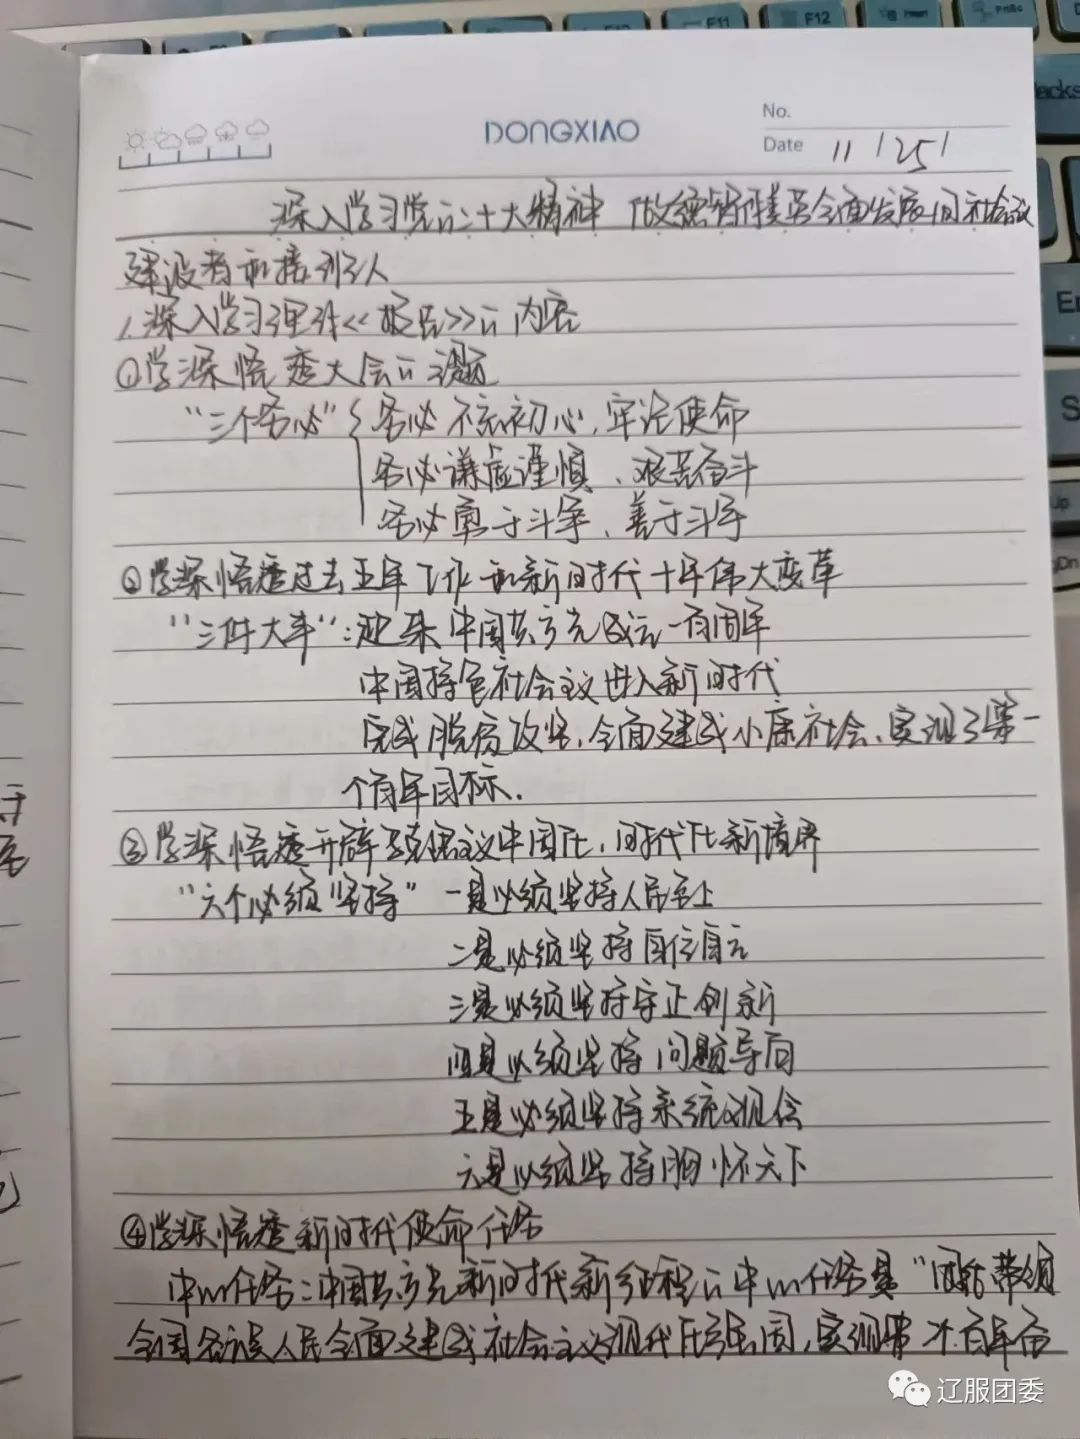 F11
F12
No.
DONGXIAO
Date 11/25/
深入学习党的二十大精神 做德智体美劳全面发展的社会主义
建设者和接班人
1.深入学习理解《报告》的内容
①学深悟透大会的主题
"三个务必" 务必不忘初心、牢记使命
务必谦虚谨慎、艰苦奋斗
务必勇于斗争、善于斗争
②学深悟透过去五年工作和新时代十年伟大变革
"三件大事":迎来中国共产党成立一百周年
中国特色社会主义进入新时代
完成脱贫攻坚、全面建成小康社会、实现了第一
个百年目标.
③学深悟透开辟马克思主义中国化、时代化新境界
"六个必须坚持" 一是必须坚持人民至上
二是必须坚持自信自立
三是必须坚持守正创新
四是必须坚持问题导向
五是必须坚持系统观念
六是必须坚持胸怀天下
④学深悟透新时代使命任务
中心任务:中国共产党新时代新征程的中心任务是"团结带领
全国各族人民全面建成社会主义现代化强国,实现第二个百年奋
辽服团委